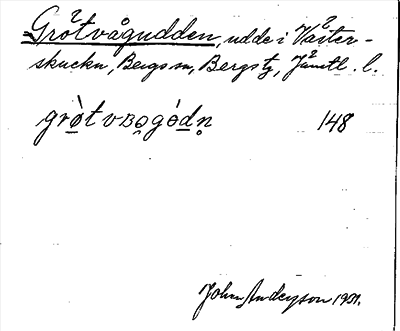 Grötvågudden, udde i Väster-
skuckn, Bergs sn, Bergs tg, Jämtl. l.
grö̀t vʙo̥gèdn̥ 148
Johan Anderson 1931.